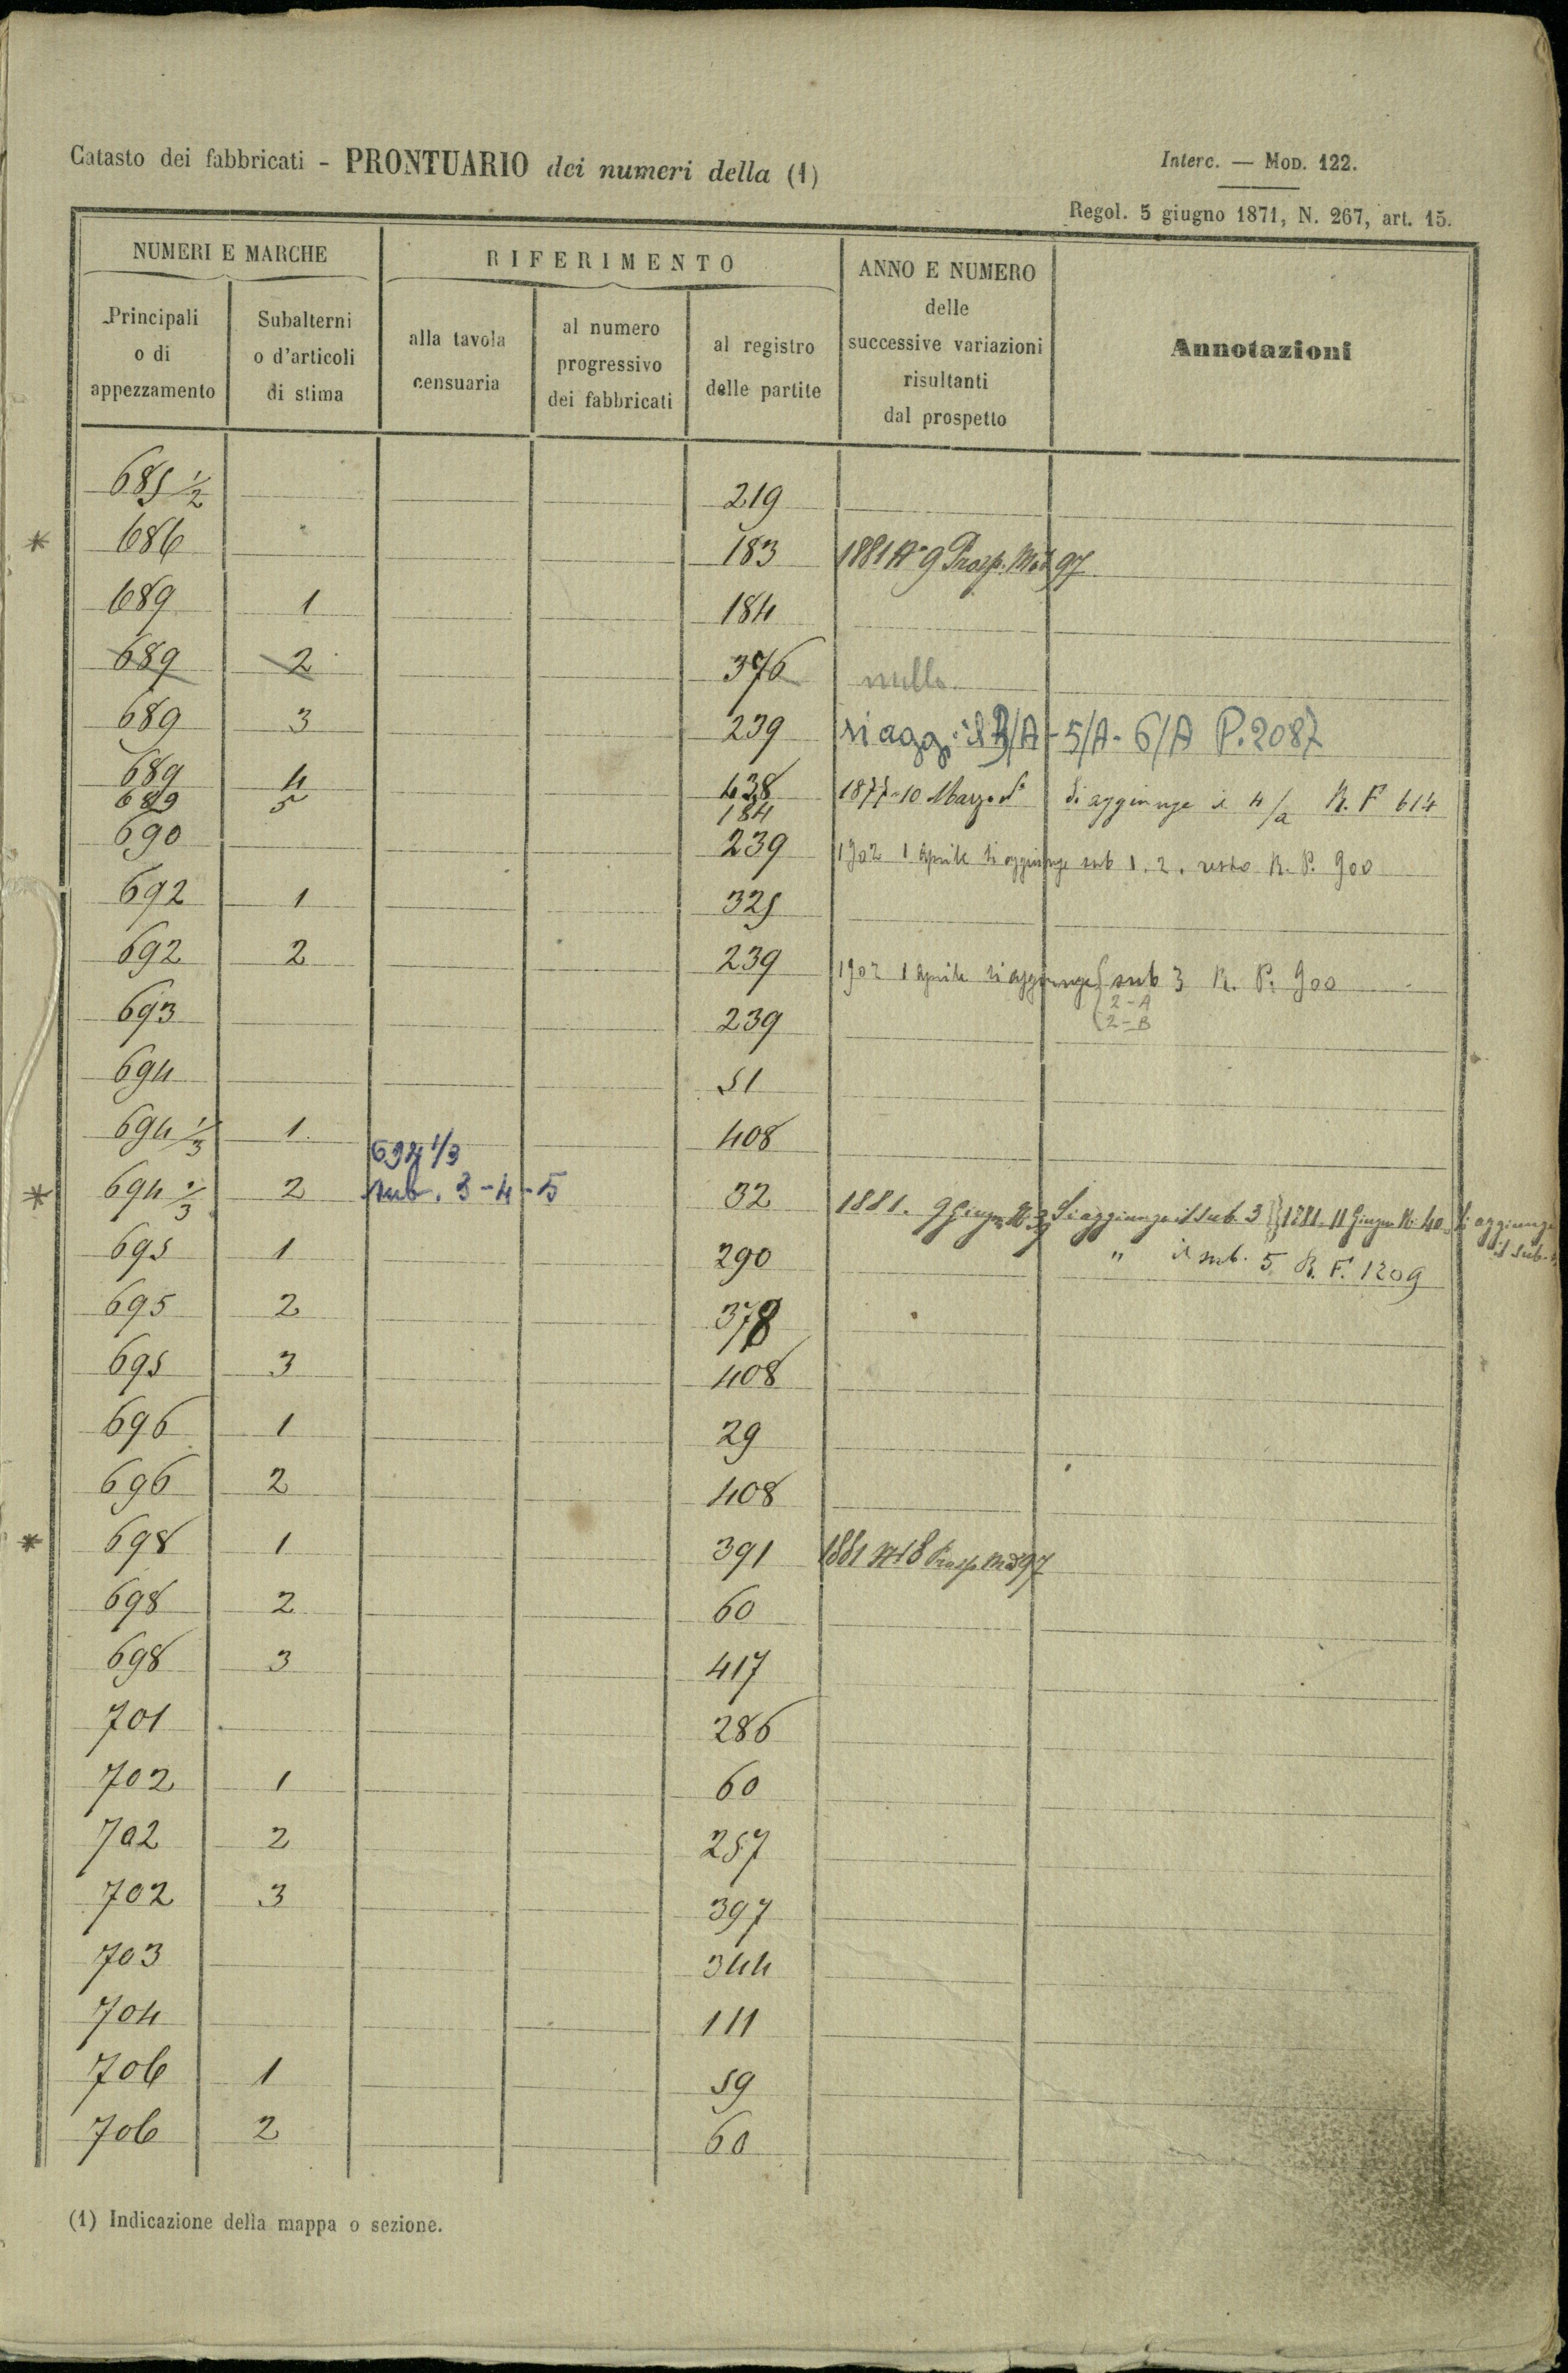 Catasto dei fabbricati - PRONTUARIO dei numeri della (1)
Interc. — Mod. 122.
Regol. 5 giugno 1871, N. 267, art. 15.
NUMERI E MARCHE
RIFERIMENTO
ANNO E NUMERO delle successive variazioni risultanti dal prospetto
Annotazioni
Principali o di appezzamento
Subalterni o d'articoli di stima
alla tavola censuaria
al numero progressivo dei fabbricati
al registro delle partite
685 1/2 219
* 686 183 1881 N° 9 Prosp. Mod 97
689 1 184
689 2 376 nullo
689 3 239 si agg. il 3/A - 5/A - 6/A P. 2087
689 4 438 1877-10 Marzo Si aggiunge il 4/a R. F 614
689 5 184
690 239 1902 1 Aprile si aggiunge sub 1. 2. resto R. P. 900
692 1 325
692 2 239 1902 1 Aprile si aggiunge sub 3 R. P. 900
2-A
693 239 2-B
694 51
694 1/3 1 408
694 1/3
* 694 1/3 2 sub. 3-4-5 32 1881. 9 Giugno N. 39 Si aggiunge il sub. 3 } 1881. 11 Giugno N. 40. Si aggiunge il sub.
695 1 290 " il sub. 5 R. F. 1209
695 2 378
695 3 408
696 1 29
696 2 408
* 698 1 391 1881 N 18 Prosp Mod 97
698 2 60
698 3 417
701 286
702 1 60
702 2 257
702 3 397
703 344
704 111
706 1 59
706 2 60
(1) Indicazione della mappa o sezione.